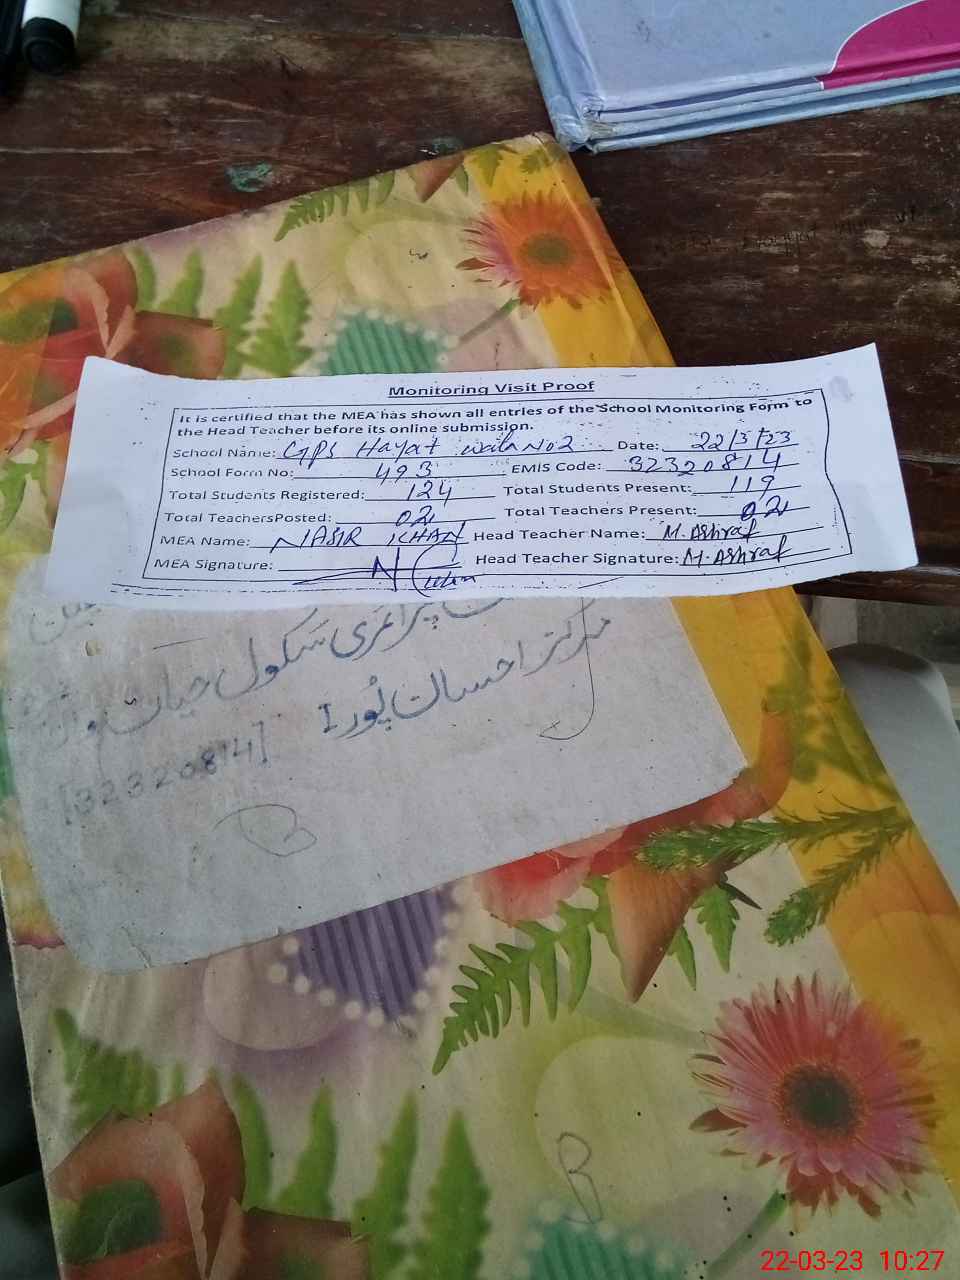 Monitoring Visit Proof
It is certified that the MEA has shown all entries of the School Monitoring Form to
the Head Teacher before its online submission.
School Name: GPS Hayat wala No2 Date: 22/3/23
School Form No: 493 EMIS Code: 32320814
Total Students Registered: 124 Total Students Present: 119
Total TeachersPosted: 02 Total Teachers Present: 02
MEA Name: NASIR KHAN Head Teacher Name: M. Ashraf
MEA Signature: Head Teacher Signature: M. Ashraf
پرائمری سکول حیات
مرکز احسان پور I
[32320814]
B
B
22-03-23 10:27